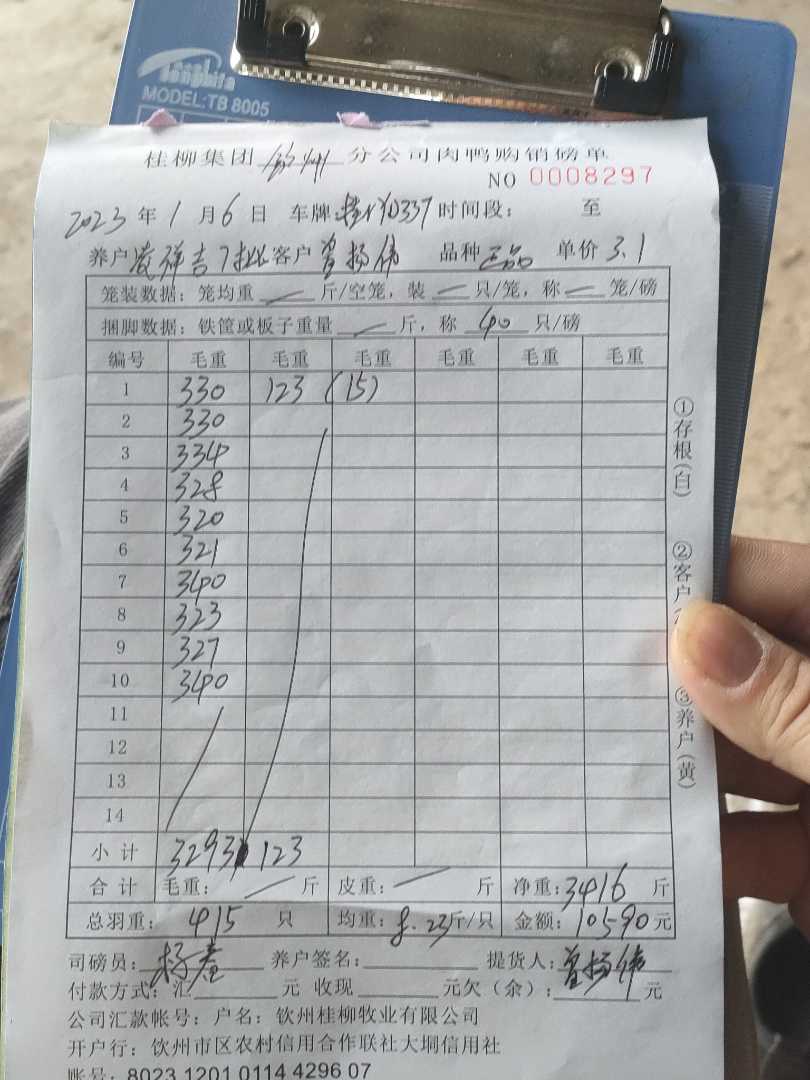 MODEL:TB 8005
桂柳集团 钦州 分公司肉鸭购销磅单
NO 0008297
2023 年 1 月 6 日 车牌: 337 时间段: 至
养户 凌祥吉 7批 客户 曾扬伟 品种 正品 单价 3.1
笼装数据: 笼均重 — 斤/空笼, 装 — 只/笼, 称 — 笼/磅
捆脚数据: 铁筐或板子重量 — 斤, 称 40 只/磅
编号 毛重 毛重 毛重 毛重 毛重 毛重
1 330 123 (15)
2 330
3 334
4 328
5 320
6 321
7 340
8 323
9 327
10 340
11
12
13
14
小计 3293 123
合计 毛重: — 斤 皮重: — 斤 净重: 3416 斤
总羽重: 415 只 均重: 8.23 斤/只 金额: 10590 元
司磅员: 养户签名: 提货人: 曾扬伟
付款方式: 汇 元 收现 元欠(余): 元
公司汇款帐号: 户名: 钦州桂柳牧业有限公司
开户行: 钦州市区农村信用合作联社大垌信用社
账号: 8023 1201 0114 4296 07
①存根(白)
②客户
③养户(黄)